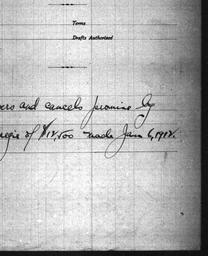 Terms
Drafts Authorized
ers and cancels promise by
egie of $12,500 made Jan 6, 1912.